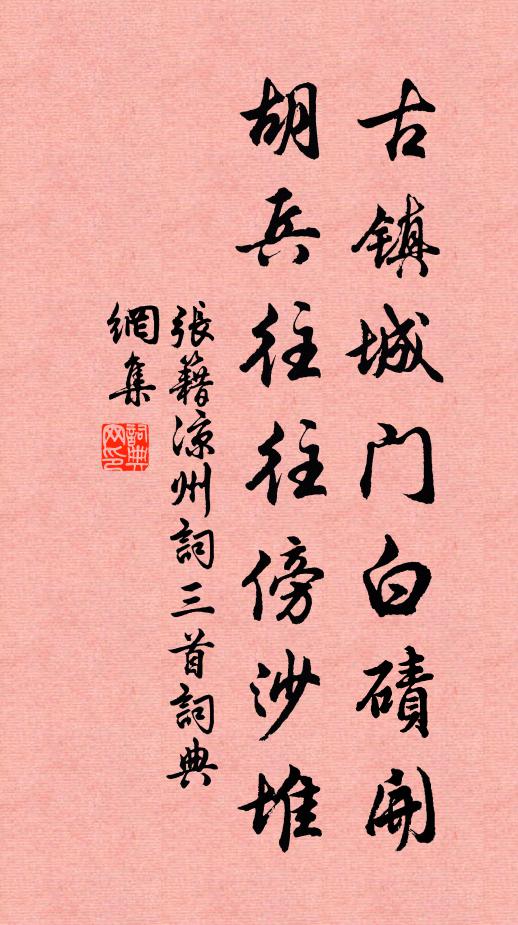 古鎮城門白磧開
胡兵往往傍沙堆
張籍涼州詞三首詞典
網集
詞典
网印